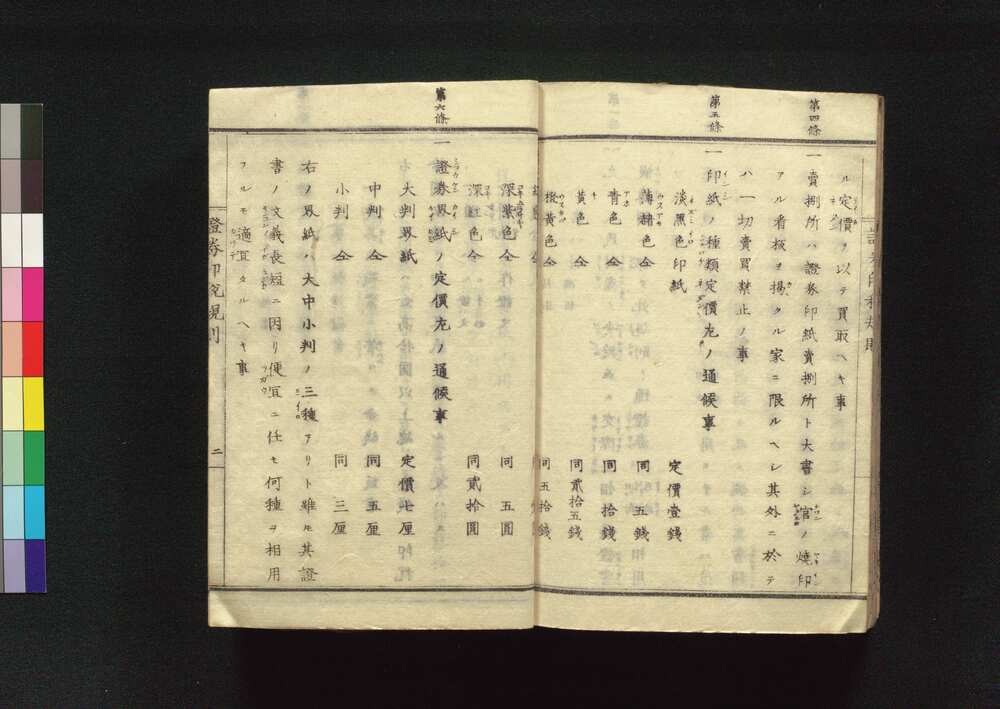 ル定價ヲ以テ買取ヘキ事
第四條
一賣捌所ハ證券印紙賣捌所ト大書シ官ノ燒印
アル看板ヲ揚クル家ニ限ルヘシ其外ニ於テ
ハ一切賣買禁止ノ事
第五條
一印紙ノ種類定價左ノ通候事
淡黑色印紙 定價壹錢
薄赭色仝 同五錢
青色仝 同拾錢
黃色仝 同貳拾五錢
橙黃色仝 同五拾錢
深紫色仝 同五圓
深紅色仝 同貳拾圓
第六條
一證券界紙ノ定價左ノ通候事
大判界紙 定價七厘
中判仝 同五厘
小判仝 同三厘
右ノ界紙ハ大中小判ノ三種アリト雖モ其證
書ノ文義長短ニ因リ便宜ニ任セ何種ヲ相用
フルモ適宜タルヘキ事
證券印税規則
二